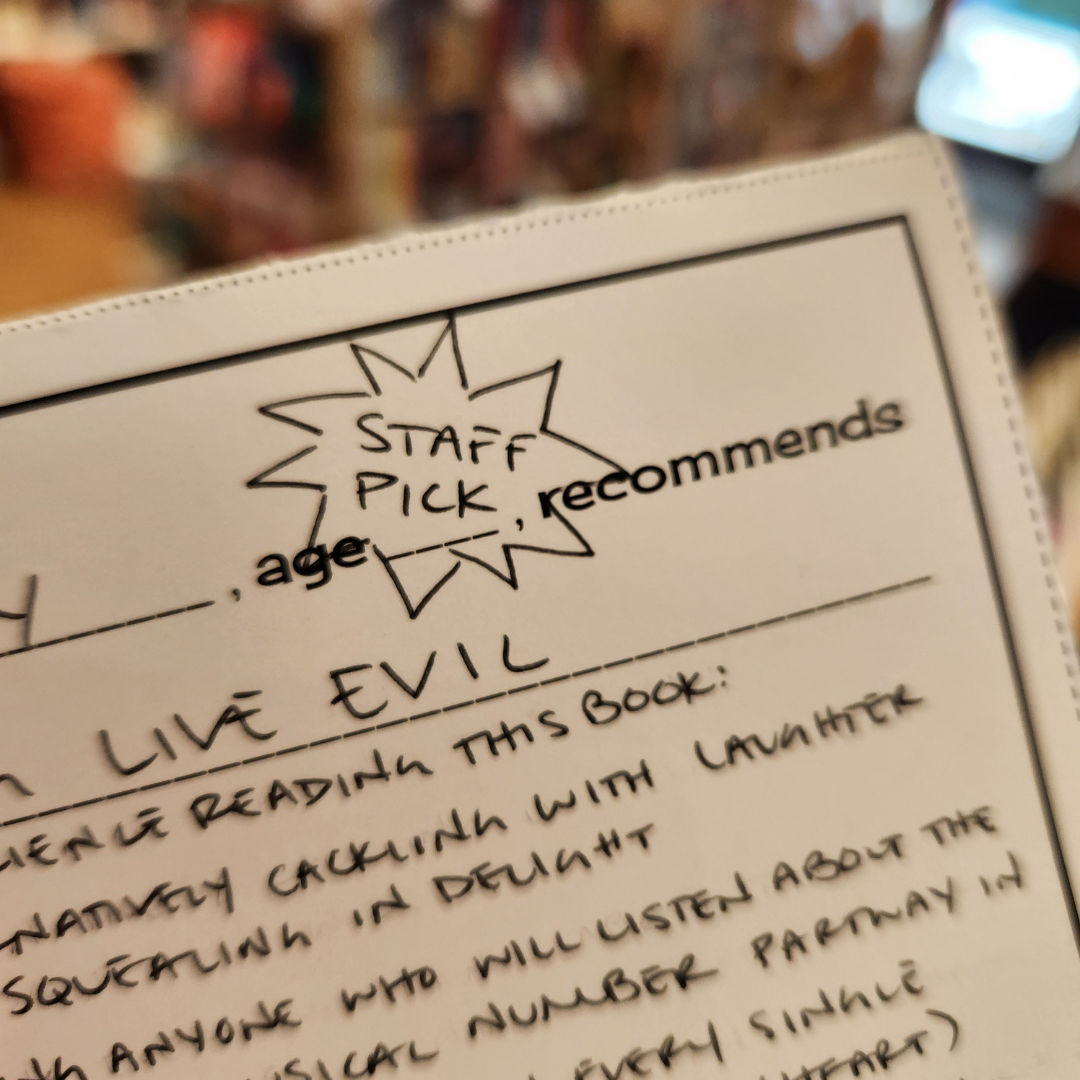 STAFF
PICK
, age ____, recommends
LIVE EVIL
READING THIS BOOK:
CACKLING WITH LAUGHTER
SQUEALING IN DELIGHT
ANYONE WHO WILL LISTEN ABOUT THE
NUMBER PARTWAY IN
EVERY SINGLE